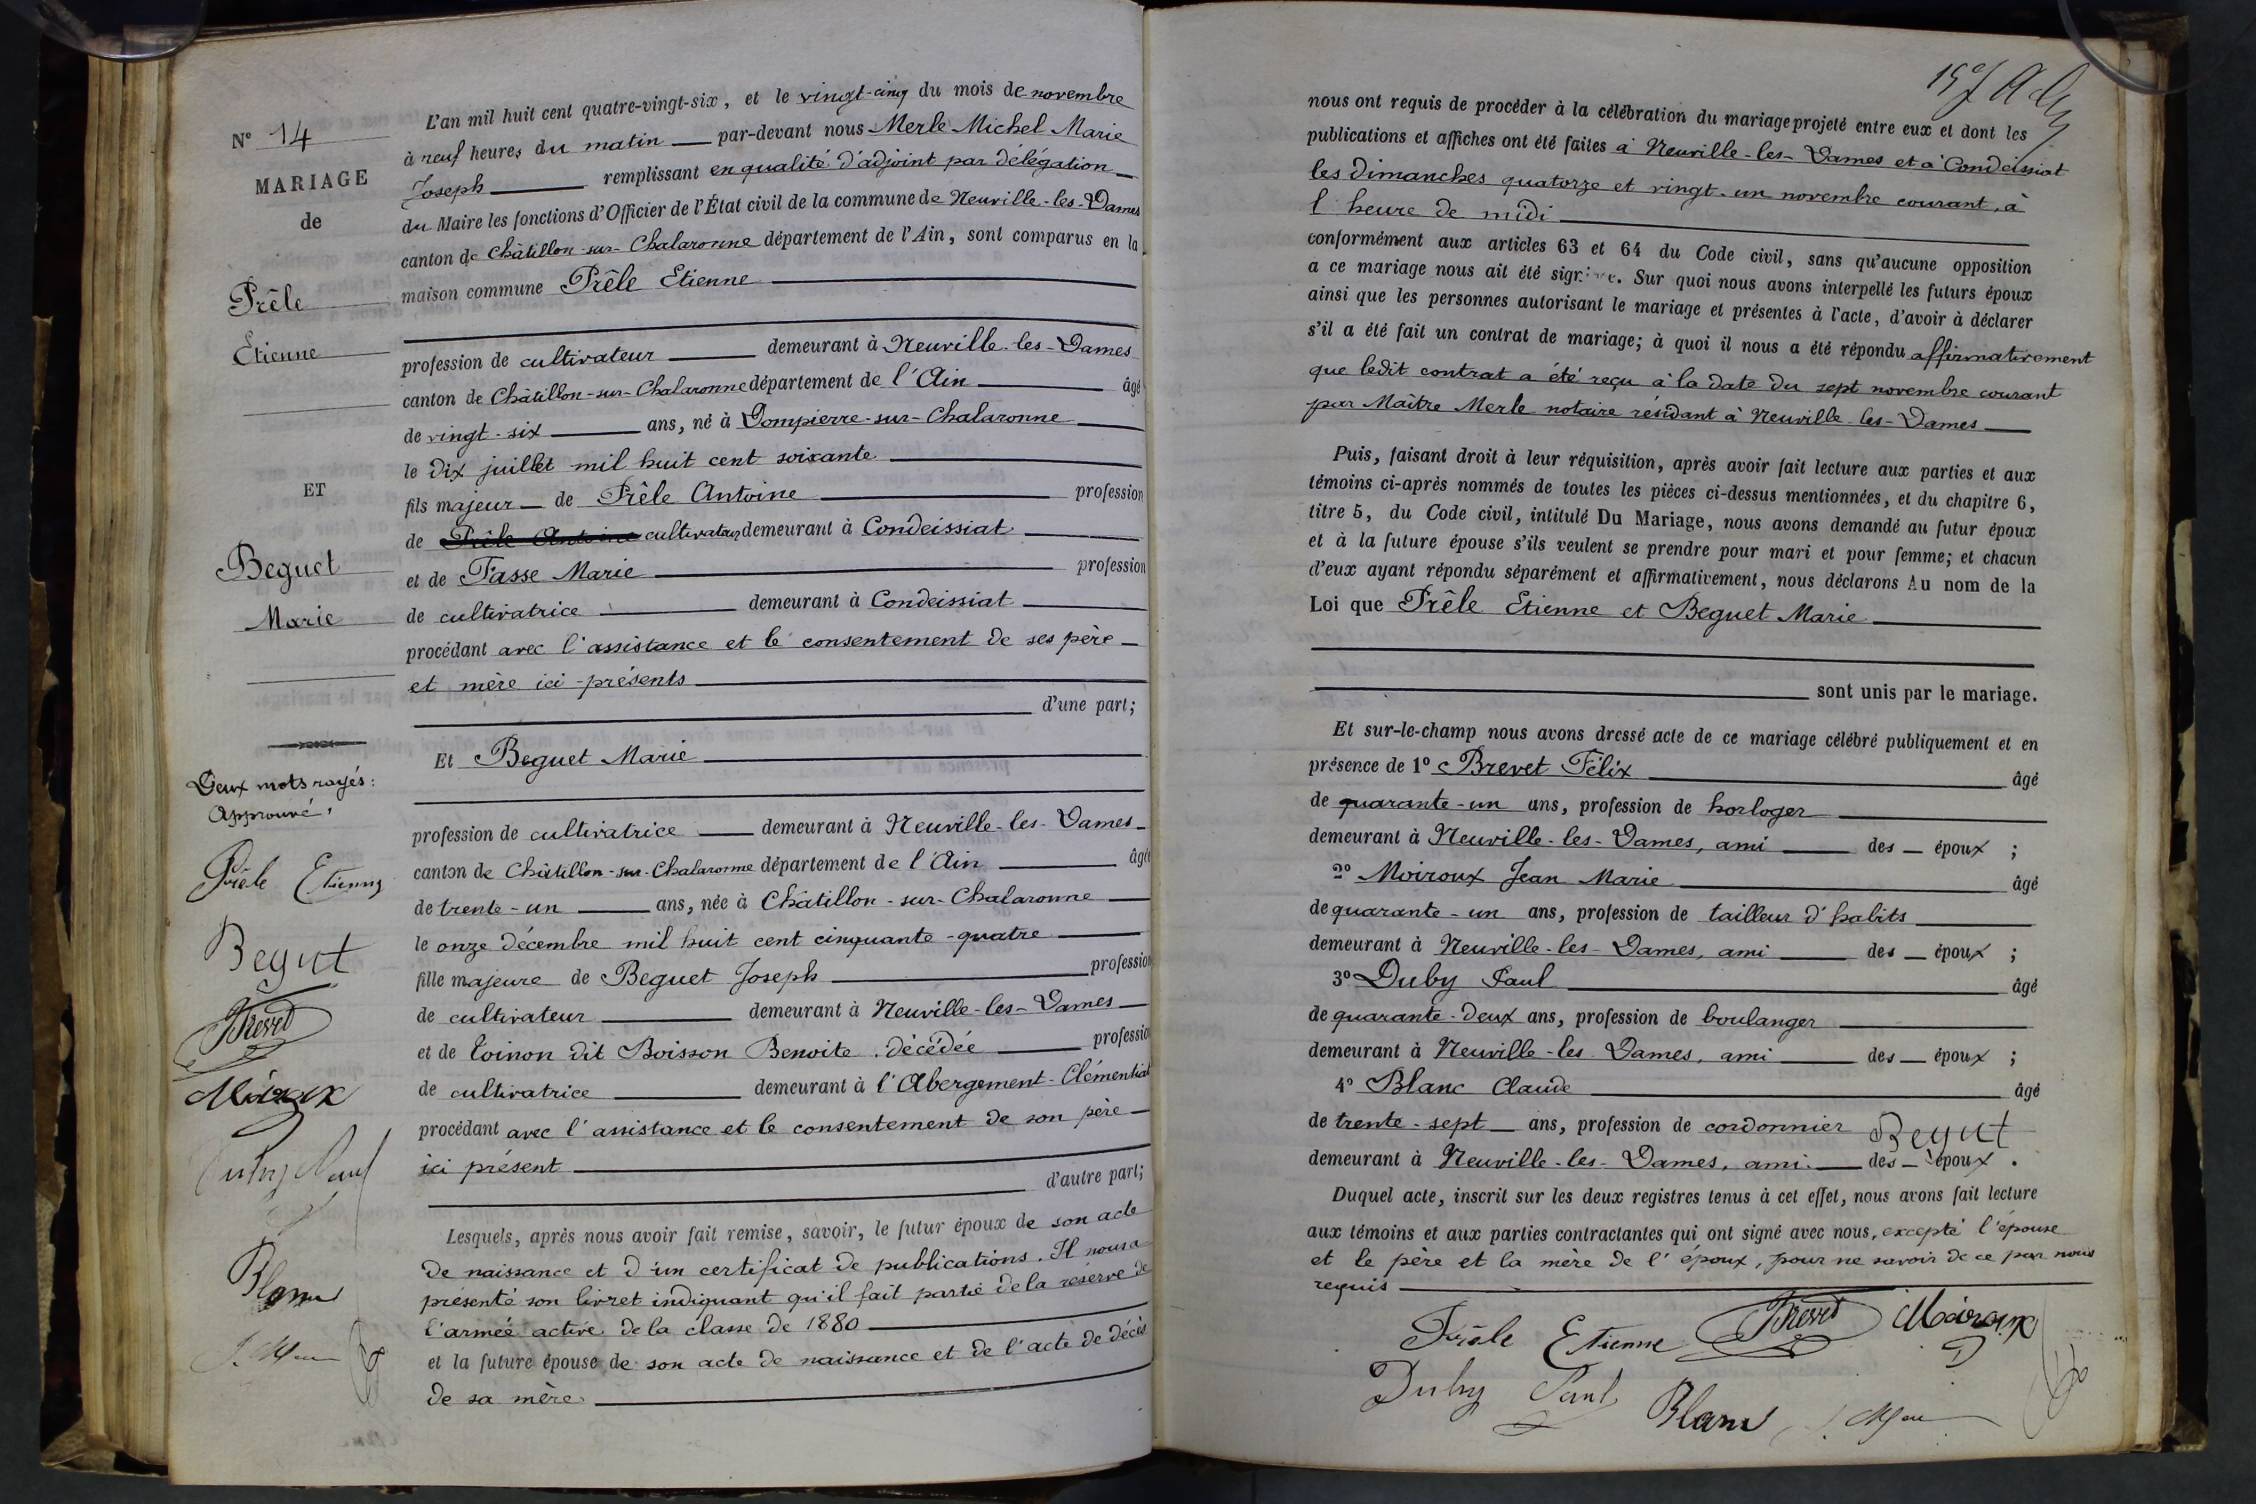 N° 14
MARIAGE
de
Prêle
Etienne
ET
Beguet
Marie
Deux mots rayés:
Approuvé.
Prêle Etienne
Begut
Brevet
Moiroux
Duby Paul
Blanc
L'an mil huit cent quatre-vingt-six, et le vingt-cinq du mois de novembre
à neuf heures du matin par-devant nous Merle Michel Marie
Joseph remplissant en qualité d'adjoint par délégation
du Maire les fonctions d'Officier de l'État civil de la commune de Neuville-les-Dames
canton de Châtillon-sur-Chalaronne département de l'Ain, sont comparus en la
maison commune Prêle Etienne
profession de cultivateur demeurant à Neuville-les-Dames
canton de Châtillon-sur-Chalaronne département de l'Ain âgé
de vingt-six ans, né à Dompierre-sur-Chalaronne
le dix juillet mil huit cent soixante
fils majeur de Prêle Antoine profession
de Prêle Antoine cultivateur demeurant à Condeissiat
et de Fasse Marie profession
de cultivatrice demeurant à Condeissiat
procédant avec l'assistance et le consentement de ses père
et mère ici-présents
d'une part;
Et Beguet Marie
profession de cultivatrice demeurant à Neuville-les-Dames
canton de Châtillon-sur-Chalaronne département de l'Ain âgée
de trente-un ans, née à Châtillon-sur-Chalaronne
le onze décembre mil huit cent cinquante-quatre
fille majeure de Beguet Joseph profession
de cultivateur demeurant à Neuville-les-Dames
et de Toinon dit Boisson Benoite, décédée profession
de cultivatrice demeurant à l'Abergement-Clémentiat
procédant avec l'assistance et le consentement de son père
ici présent
d'autre part;
Lesquels, après nous avoir fait remise, savoir, le futur époux de son acte
de naissance et d'un certificat de publications. Il nous a
présenté son livret indiquant qu'il fait partie de la réserve de
l'armée active de la classe de 1880
et la future épouse de son acte de naissance et de l'acte de décès
de sa mère
nous ont requis de procéder à la célébration du mariage projeté entre eux et dont les
publications et affiches ont été faites à Neuville-les-Dames et à Condeissiat
les dimanches quatorze et vingt-un novembre courant, à
l'heure de midi
conformément aux articles 63 et 64 du Code civil, sans qu'aucune opposition
a ce mariage nous ait été signifiée. Sur quoi nous avons interpellé les futurs époux
ainsi que les personnes autorisant le mariage et présentes à l'acte, d'avoir à déclarer
s'il a été fait un contrat de mariage; à quoi il nous a été répondu affirmativement
que ledit contrat a été reçu à la date du sept novembre courant
par Maître Merle notaire résidant à Neuville-les-Dames
Puis, faisant droit à leur réquisition, après avoir fait lecture aux parties et aux
témoins ci-après nommés de toutes les pièces ci-dessus mentionnées, et du chapitre 6,
titre 5, du Code civil, intitulé Du Mariage, nous avons demandé au futur époux
et à la future épouse s'ils veulent se prendre pour mari et pour femme; et chacun
d'eux ayant répondu séparément et affirmativement, nous déclarons Au nom de la
Loi que Prêle Etienne et Beguet Marie
sont unis par le mariage.
Et sur-le-champ nous avons dressé acte de ce mariage célébré publiquement et en
présence de 1° Brevet Félix âgé
de quarante-un ans, profession de horloger
demeurant à Neuville-les-Dames, ami des époux ;
2° Moiroux Jean Marie âgé
de quarante-un ans, profession de tailleur d'habits
demeurant à Neuville-les-Dames, ami des époux ;
3° Duby Paul âgé
de quarante-deux ans, profession de boulanger
demeurant à Neuville-les-Dames, ami des époux ;
4° Blanc Claude âgé
de trente-sept ans, profession de cordonnier Begut
demeurant à Neuville-les-Dames, ami des époux.
Duquel acte, inscrit sur les deux registres tenus à cet effet, nous avons fait lecture
aux témoins et aux parties contractantes qui ont signé avec nous, excepté l'épouse
et le père et la mère de l'époux, pour ne savoir de ce par nous
requis
Prêle Etienne Brevet Moiroux
Duby Paul Blanc